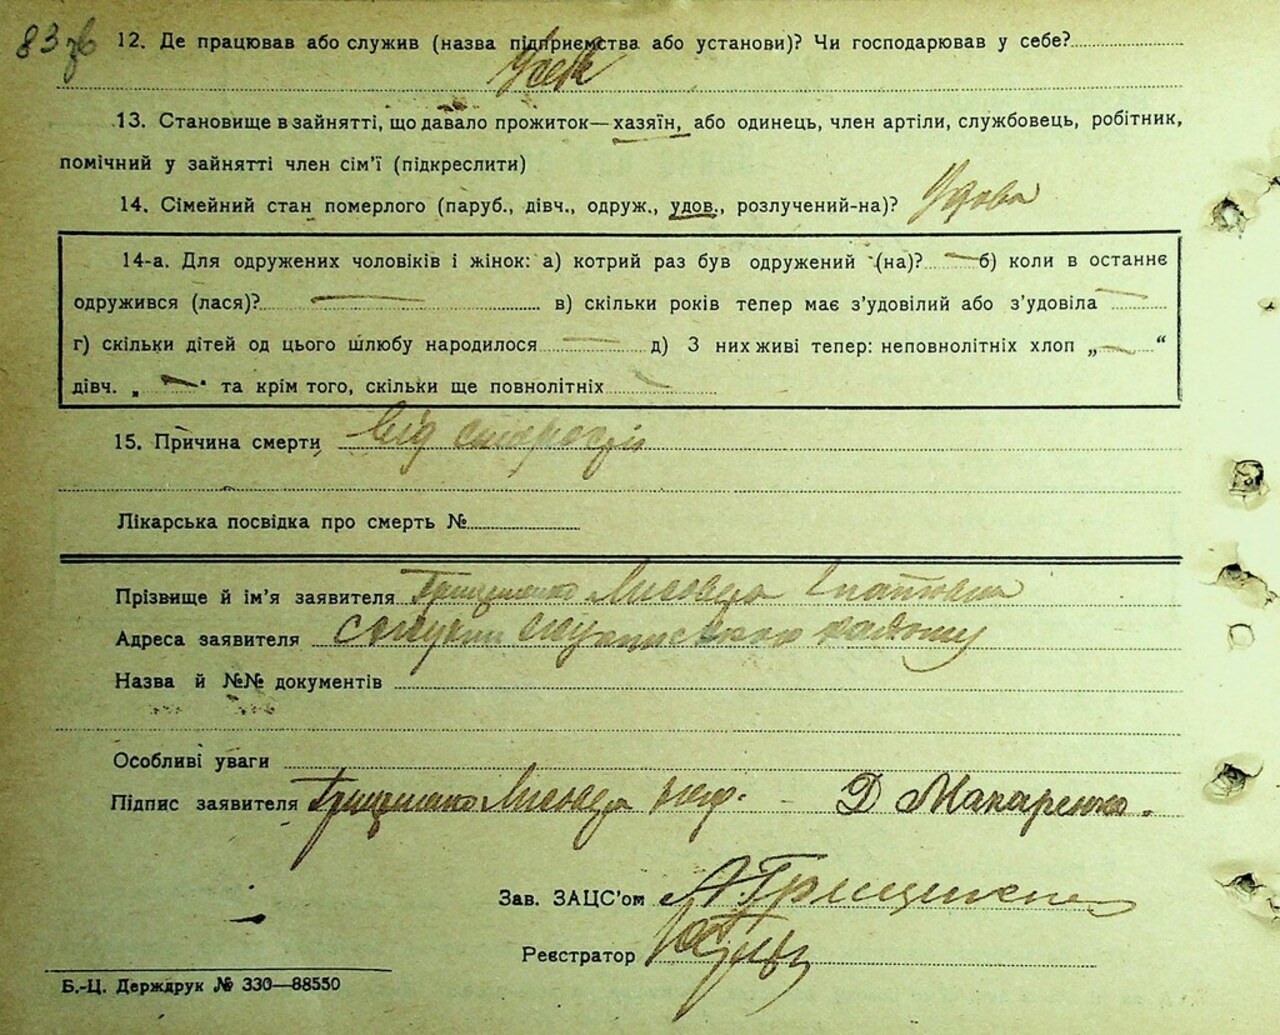 83 зв
12. Де працював або служив (назва підприємства або установи)? Чи господарював у себе?
У себе
13. Становище в зайнятті, що давало прожиток—хазяїн, або одинець, член артіли, службовець, робітник,
помічний у зайнятті член сім'ї (підкреслити)
14. Сімейний стан померлого (паруб., дівч., одруж., удов., розлучений-на)? Удова
14-а. Для одружених чоловіків і жінок: а) котрий раз був одружений (на)? — б) коли в останнє
одружився (лася)? — в) скільки років тепер має з'удовілий або з'удовіла —
г) скільки дітей од цього шлюбу народилося — д) З них живі тепер: неповнолітніх хлоп „ — “
дівч. „ — “ та крім того, скільки ще повнолітніх —
15. Причина смерти Від старости
Лікарська посвідка про смерть №
Прізвище й ім'я заявителя Грищенко
Адреса заявителя району
Назва й №№ документів
Особливі уваги
Підпис заявителя Грищенко - Д Макаренко.
Зав. ЗАЦС'ом А. Грищенко
Реєстратор
Б.-Ц. Держдрук № 330—88550